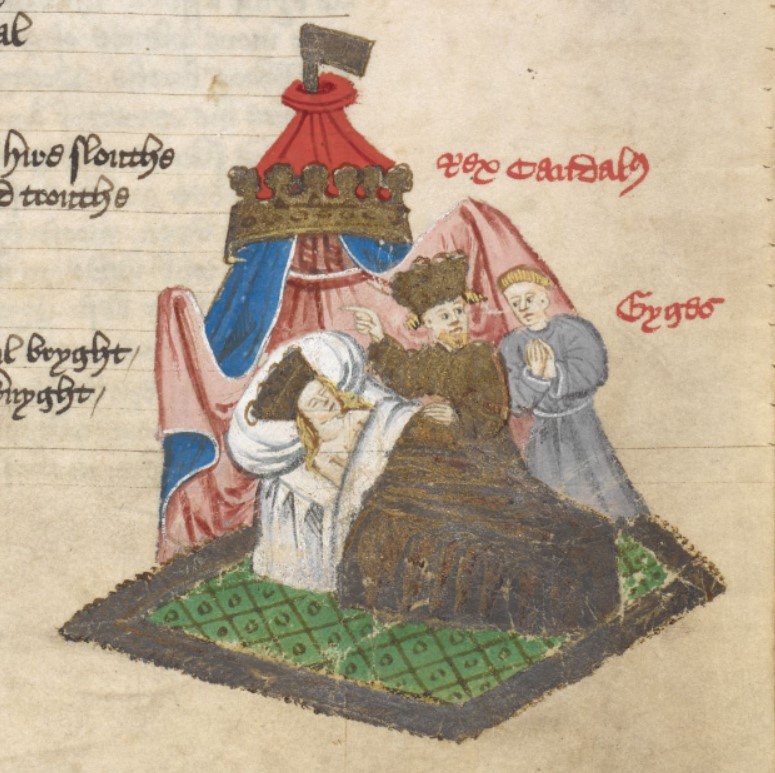 al
hire slouthe
d trouthe
Rex Candalus
Gyges
al bryght /
knyght /